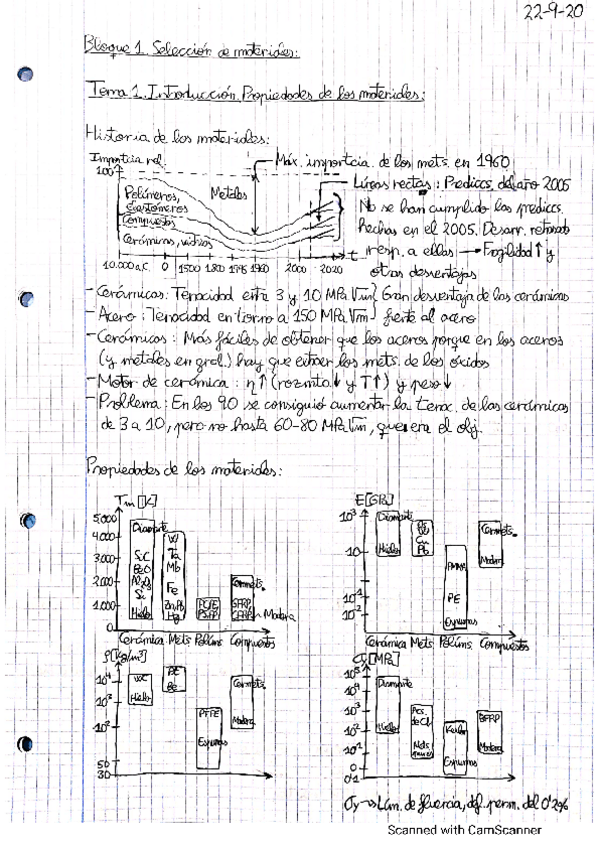 22-9-20
Bloque 1. Selección de materiales:
Tema 1. Introducción. Propiedades de los materiales:
Historia de los materiales:
Importcia rel.
100
Máx. importcia. de los mets. en 1960
Polímeros, elastómeros
Metales
Líneas rectas: Prediccs. del año 2005
Compuestos
No se han cumplido las prediccs.
hechas en el 2005. Desarr. retrasado
Cerámicas, vidrios
resp. a ellas → Fragilidad↑ y
otras desventajas
t
10.000 a.C. 0 1500 1800 1945 1960 2000 2020
- Cerámicas: Tenacidad entre 3 y 10 MPa√m } Gran desventaja de las cerámicas
- Acero: Tenacidad en torno a 150 MPa√m } frente al acero
- Cerámicas: Más fáciles de obtener que los aceros porque en los aceros
(y metales en gral.) hay que extraer los mets. de los óxidos
- Motor de cerámica: η↑ (rozmto.↓ y T↑) y peso↓
- Problema: En los 90 se consiguió aumentar la tenac. de las cerámicas
de 3 a 10, pero no hasta 60-80 MPa√m, que era el obj.
Propiedades de los materiales:
Tm [K]
5.000
4.000
3.000
2.000
1.000
0
Diamante
SiC
BeO
Al2O3
Si
Hielo
W
Ta
Mb
Fe
Zn, Pb
Hg
PTFE
Cermets.
GFRP
CFRP
Madera
Cerámica Mets Políms. Compuestos
E [GPa]
10³
10
10⁻¹
10⁻²
Diamante
Hielo
Cu
Pb
PMMA
PE
Espumas
Cermets.
Madera
Cerámica Mets. Políms. Compuestos
ρ [kg/m³]
10⁴
10³
10²
50
30
WC
Hielo
Pt
Be
PTFE
Espumas
Cermets.
Madera
σy [MPa]
10⁵
10⁴
10³
10²
10¹
1
0'1
Diamante
Hielo
Acs. de Cl
Mets. puros
Kevlar
Espumas
BFRP
Madera
σy → Lím. de fluencia, def. perm. del 0'2%
Scanned with CamScanner